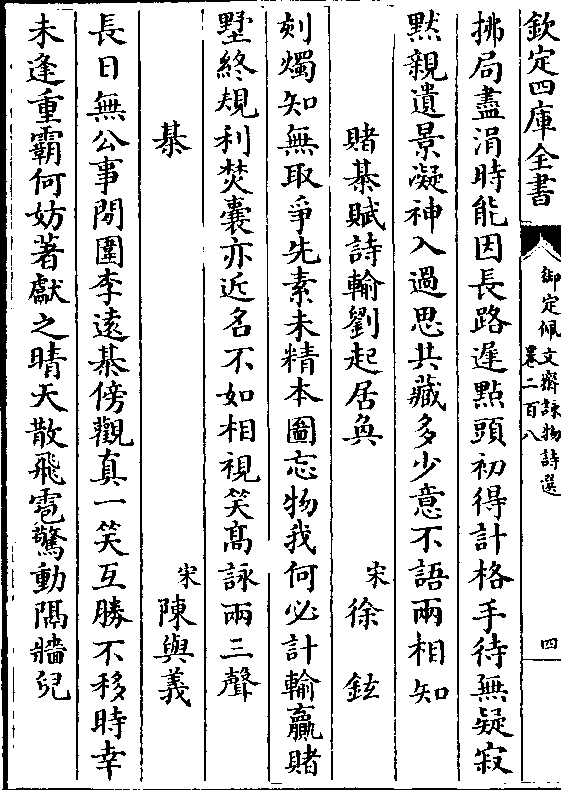 欽定四庫全書
御定佩文齋詠物詩選
卷二百八
四
拂局盡涓時能因長路遲點頭初得計格手待無疑寂
黙親遺景凝神入過思共藏多少意不語兩相知
賭棊賦詩輸劉起居奐
宋徐鉉
刻燭知無取爭先素未精本圖忘物我何必計輸贏賭
墅終規利焚囊亦近名不如相視笑髙詠兩三聲
棊
宋陳與義
長日無公事閒圍李遠棊傍觀真一笑互勝不移時幸
未逢重霸何妨著獻之晴天散飛雹驚動隔牆兒